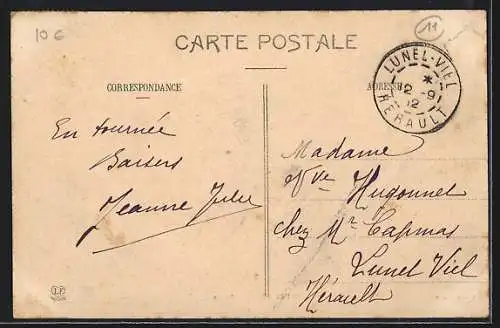 10 €
11
CARTE POSTALE
CORRESPONDANCE
ADRESSE
LUNEL-VIEL
*
12 -9
12
HÉRAULT
En tournée
Baisers
Jeanne Julie
Madame
Vve Hugonnet
chez Mr Capmas
Lunel Viel
Hérault